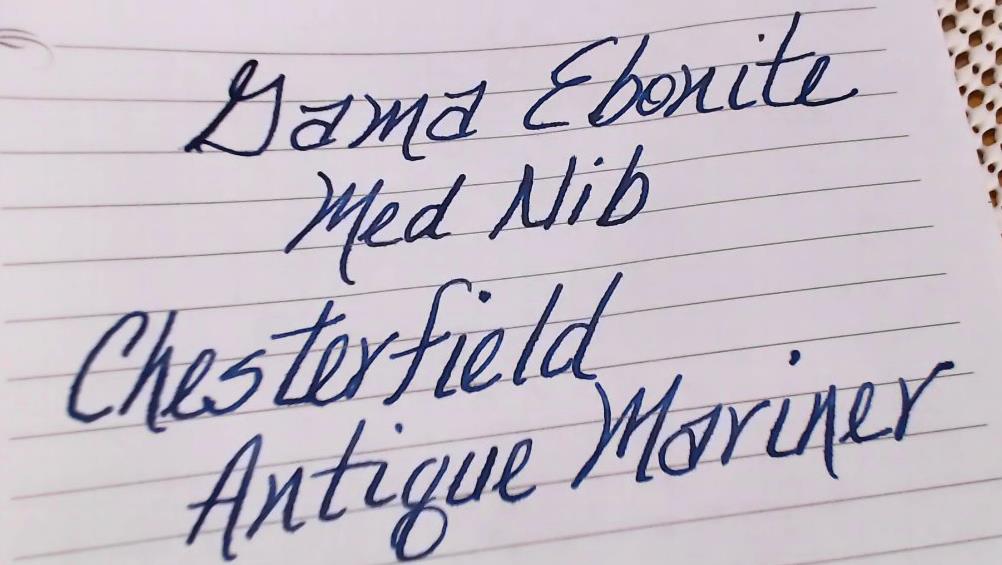 Gama Ebonite
Med Nib
Chesterfield
Antique Mariner